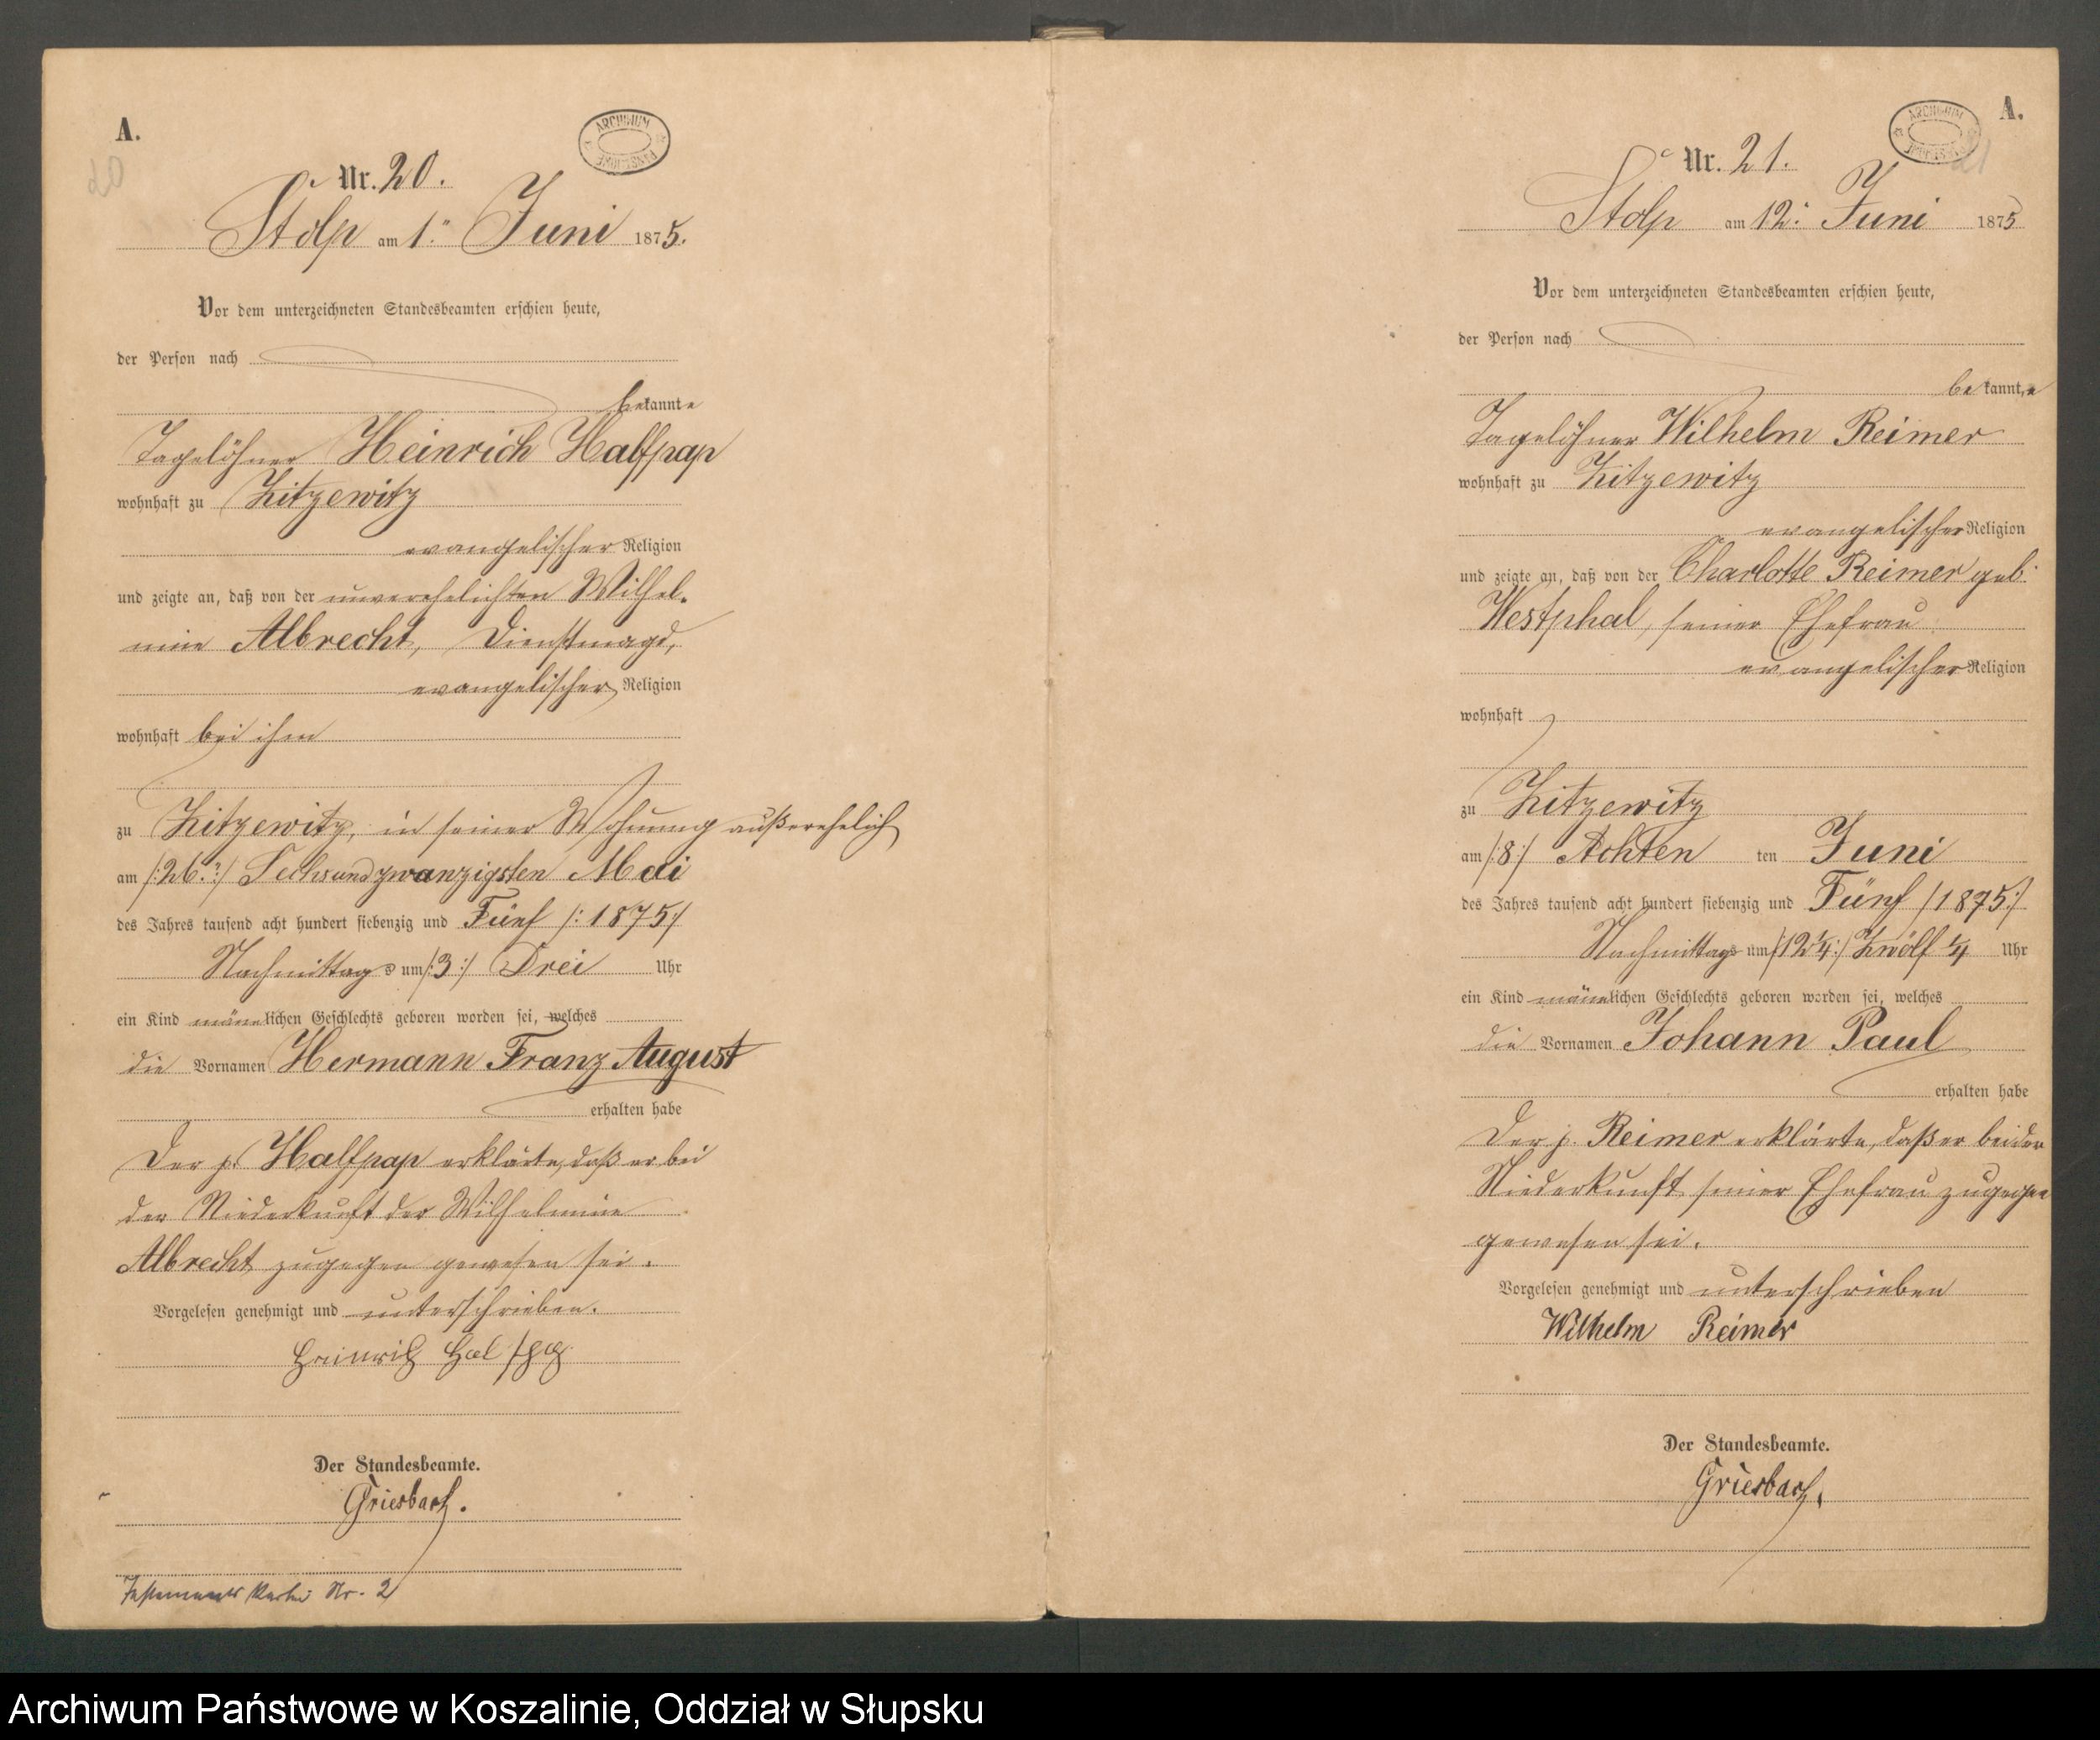 A.
20
ARCHIWUM PAŃSTWOWE
Nr. 20.
Stolp am 1. Juni 1875.
Vor dem unterzeichneten Standesbeamten erschien heute,
der Person nach
bekannte
Tagelöhner Heinrich Halfpap
wohnhaft zu Zitzewitz
evangelischer Religion
und zeigte an, daß von der unverehelichten Wilhel-
mine Albrecht, Dienstmagd,
evangelischer Religion
wohnhaft bei ihm
zu Zitzewitz, in seiner Wohnung außerehelich
am /:26.:/ Sechsundzwanzigsten Mai
des Jahres tausend acht hundert siebenzig und Fünf /:1875:/
Nachmittags um /:3:/ Drei Uhr
ein Kind männlichen Geschlechts geboren worden sei, welches
die Vornamen Hermann Franz August
erhalten habe
Der p. Halfpap erklärte, daß er bei
der Niederkunft der Wilhelmine
Albrecht zugegen gewesen sei.
Vorgelesen genehmigt und unterschrieben.
Heinrich Halfpap
Der Standesbeamte.
Griesbach.
Testaments Kartei Nr. 2
A.
21
ARCHIWUM PAŃSTWOWE
Nr. 21.
Stolp am 12. Juni 1875
Vor dem unterzeichneten Standesbeamten erschien heute,
der Person nach
bekannte
Tagelöhner Wilhelm Reimer
wohnhaft zu Zitzewitz
evangelischer Religion
und zeigte an, daß von der Charlotte Reimer geb.
Westphal, seiner Ehefrau
evangelischer Religion
wohnhaft
zu Zitzewitz
am /:8:/ Achten ten Juni
des Jahres tausend acht hundert siebenzig und Fünf /1875:/
Nachmittags um /:12¼:/ Zwölf ¼ Uhr
ein Kind männlichen Geschlechts geboren worden sei, welches
die Vornamen Johann Paul
erhalten habe
Der p. Reimer erklärte, daß er bei der
Niederkunft seiner Ehefrau zugegen
gewesen sei.
Vorgelesen genehmigt und unterschrieben
Wilhelm Reimer
Der Standesbeamte.
Griesbach.
Archiwum Państwowe w Koszalinie, Oddział w Słupsku